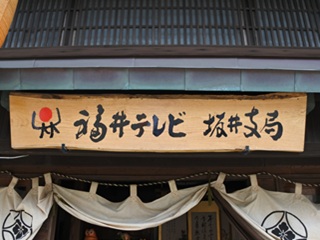 福井テレビ 坂井支局